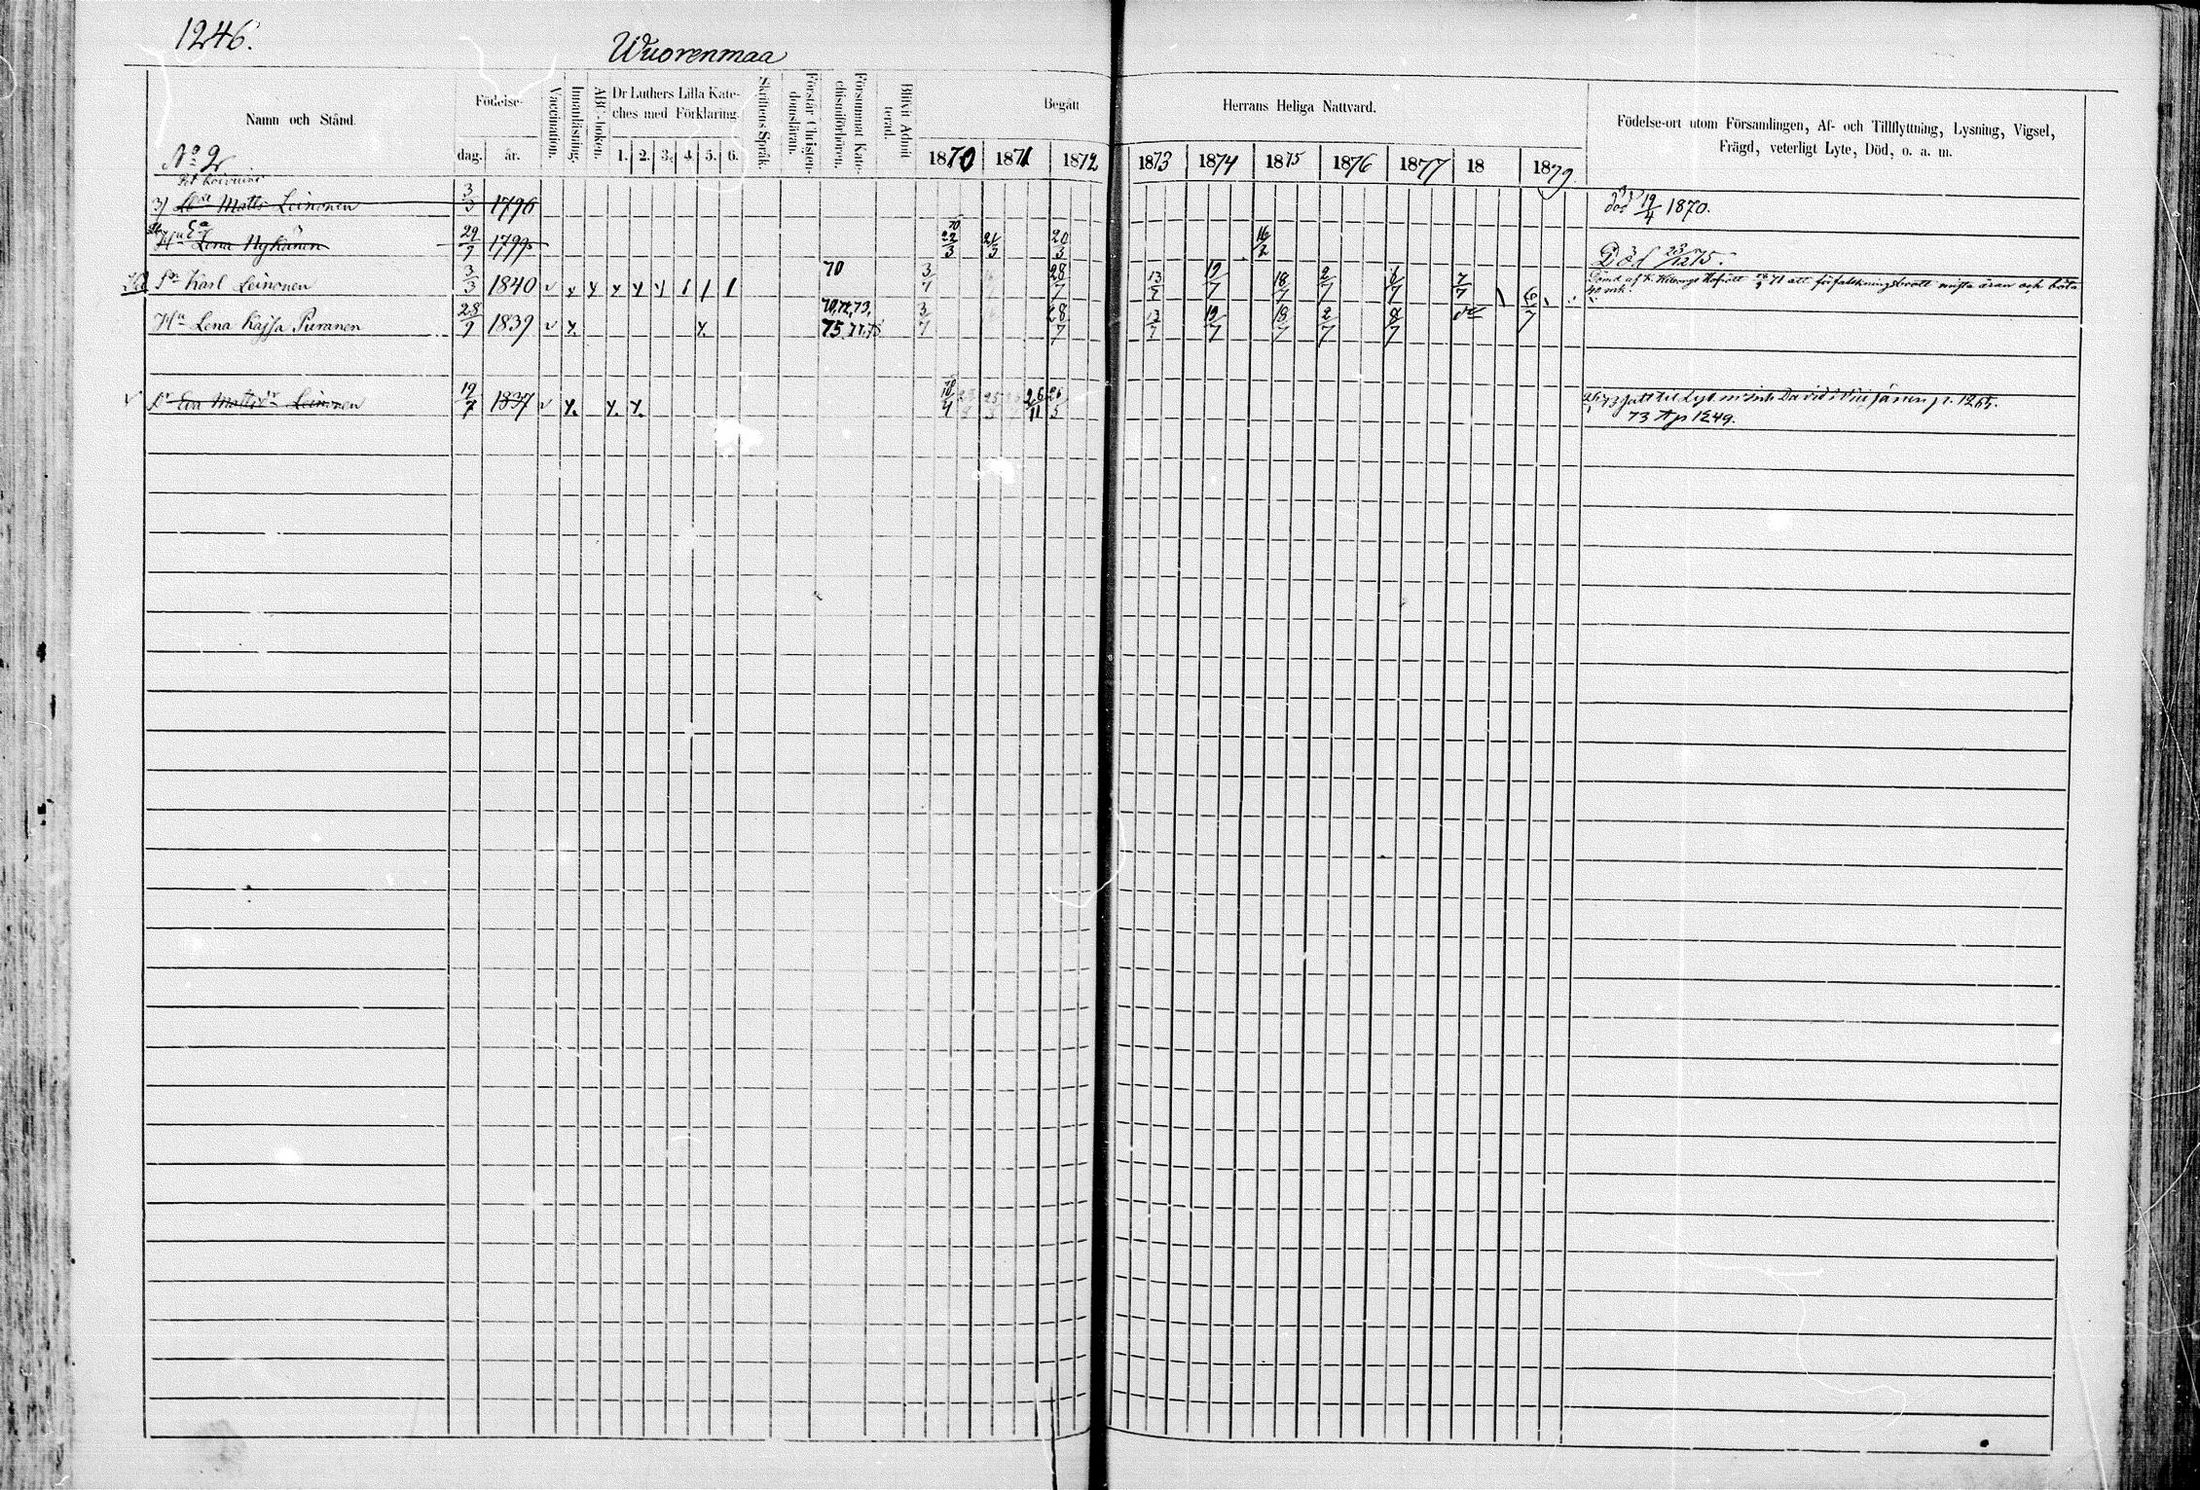 1246.
Wuorenmaa
Namn och Stånd.
Födelse-
dag.
år.
Vaccination.
Innanläsning.
ABC-boken.
Dr Luthers Lilla Kate-
ches med Förklaring.
1. 2. 3. 4. 5. 6.
Skriftens Språk.
Förstår Christen-
domsläran.
Försummat Kate-
chismiförhören.
Blivit Admit-
terad.
Begått Herrans Heliga Nattvard.
1870 1871 1872 1873 1874 1875 1876 1877 18 1879
Födelse-ort utom Församlingen, Af- och Tillflyttning, Lysning, Vigsel,
Frägd, veterligt Lyte, Död, o. a. m.
No 2
3) Matts Leinonen 3/3 1796 död 19/4 1870.
Hu Lena Nykänen 29/9 1799 22/3 21/3 20/3 16/2 Död 23/12 75.
Sn Karl Leinonen 3/3 1840 70 3/7 28/7 13/7 19/7 18/7 2/7 8/7 7/7 6/7
att förfalskningsbrott mista äran och böta
40 mk.
Hu Lena Kajsa Puranen 28/9 1839 70, 72, 73,
75, 77, 78 3/7 28/7 13/7 19/7 18/7 2/7 8/7
Dr Eva Mattsdr Leinonen 19/7 1837 26/11 p. 1265.
73 p 1249.